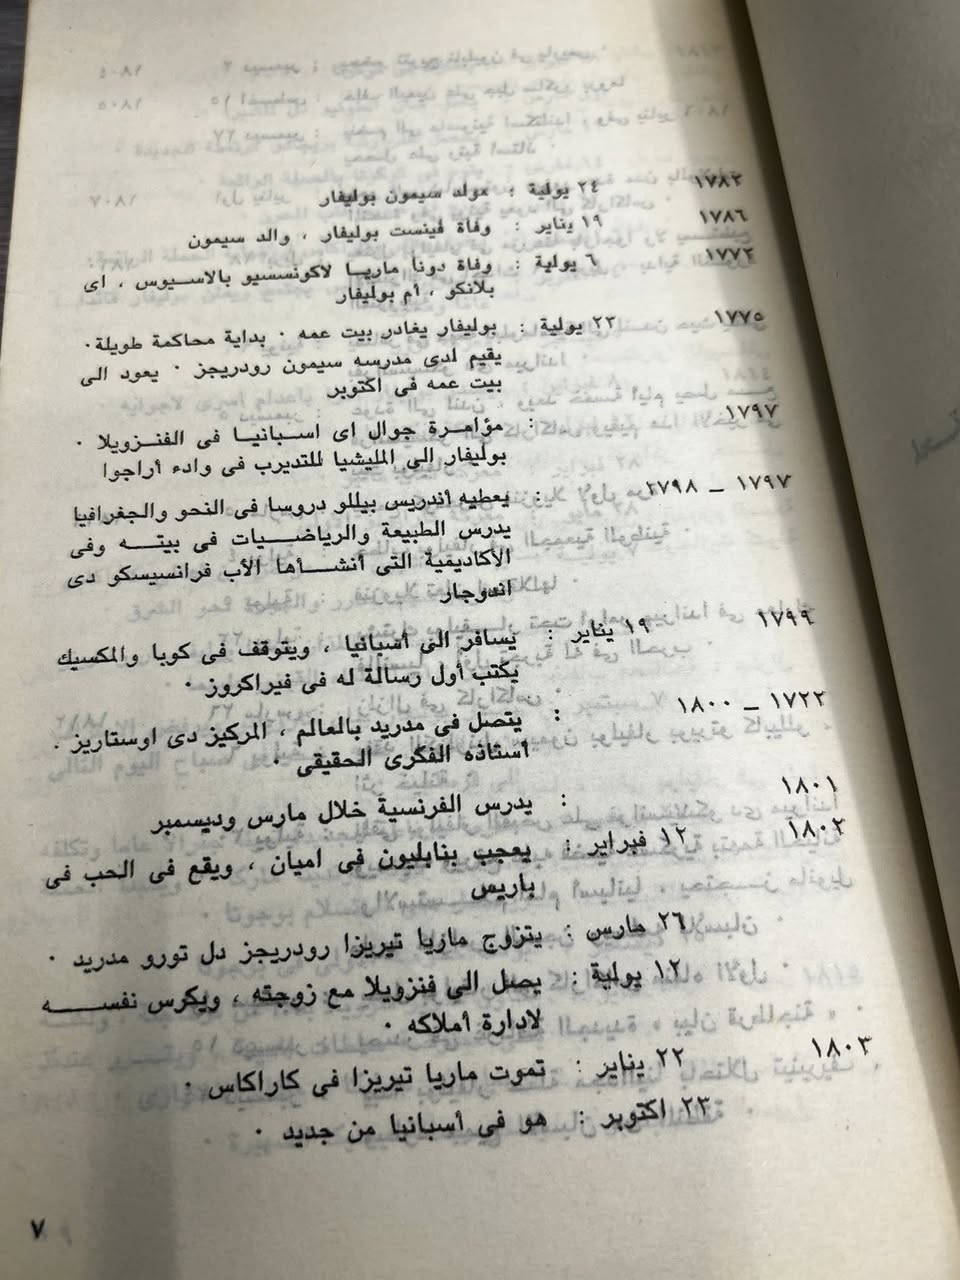 ١٧٨٣ ٢٤ يولية : مولد سيمون بوليفار
١٧٨٦ ١٩ يناير : وفاة فينست بوليفار ، والد سيمون
١٧٧٢ ٦ يولية : وفاة دونا ماريا لاكونسسيو بالاسيوس ، اى
بلانكو ، أم بوليفار
١٧٧٥ ٢٣ يولية : بوليفار يغادر بيت عمه ٠ بداية محاكمة طويلة ٠
يقيم لدى مدرسه سيمون رودريجز ٠ يعود الى
بيت عمه فى اكتوبر
١٧٩٧ : مؤامرة جوال اى اسبانيا فى الفنزويلا ٠
بوليفار الى المليشيا للتديرب فى وادء أراجوا
١٧٩٧ ــ ٢٧٩٨ : يعطيه أندريس بيللو دروسا فى النحو والجغرافيا
يدرس الطبيعة والرياضيات فى بيته وفى
الأكاديمية التى أنشأها الأب فرانسيسكو دى
اندوجار
١٧٩٩ ١٩ يناير : يسافر الى أسبانيا ، ويتوقف فى كوبا والمكسيك
يكتب أول رسالة له فى فيراكروز ٠
١٧٢٢ ــ ١٨٠٠ : يتصل فى مدريد بالعالم ، المركيز دى اوستاريز ٠
أستاذه الفكرى الحقيقى ٠
١٨٠١ : يدرس الفرنسية خلال مارس وديسمبر
١٨٠٢ ١٢ فبراير : يعجب بنابليون فى اميان ، ويقع فى الحب فى
باريس
٢٦ مارس : يتزوج ماريا تيريزا رودريجز دل تورو مدريد ٠
١٢ يولية : يصل الى فنزويلا مع زوجته ، ويكرس نفسه
لادارة أملاكه ٠
١٨٠٣ ٢٢ يناير : تموت ماريا تيريزا فى كاراكاس ٠
٢٣ اكتوبر : هو فى أسبانيا من جديد ٠
٧